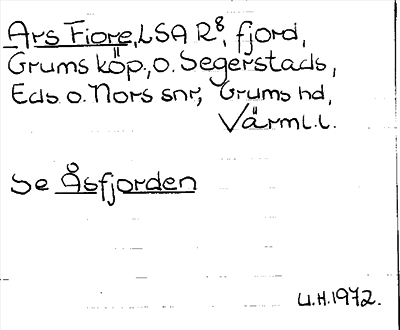 Ars Fiore, LSA R⁸, fjord,
Grums köp., o. Segerstads,
Eds. o. Nors snr, Grums hd,
Värml. l.
Se Åsfjorden
U.H. 1972.